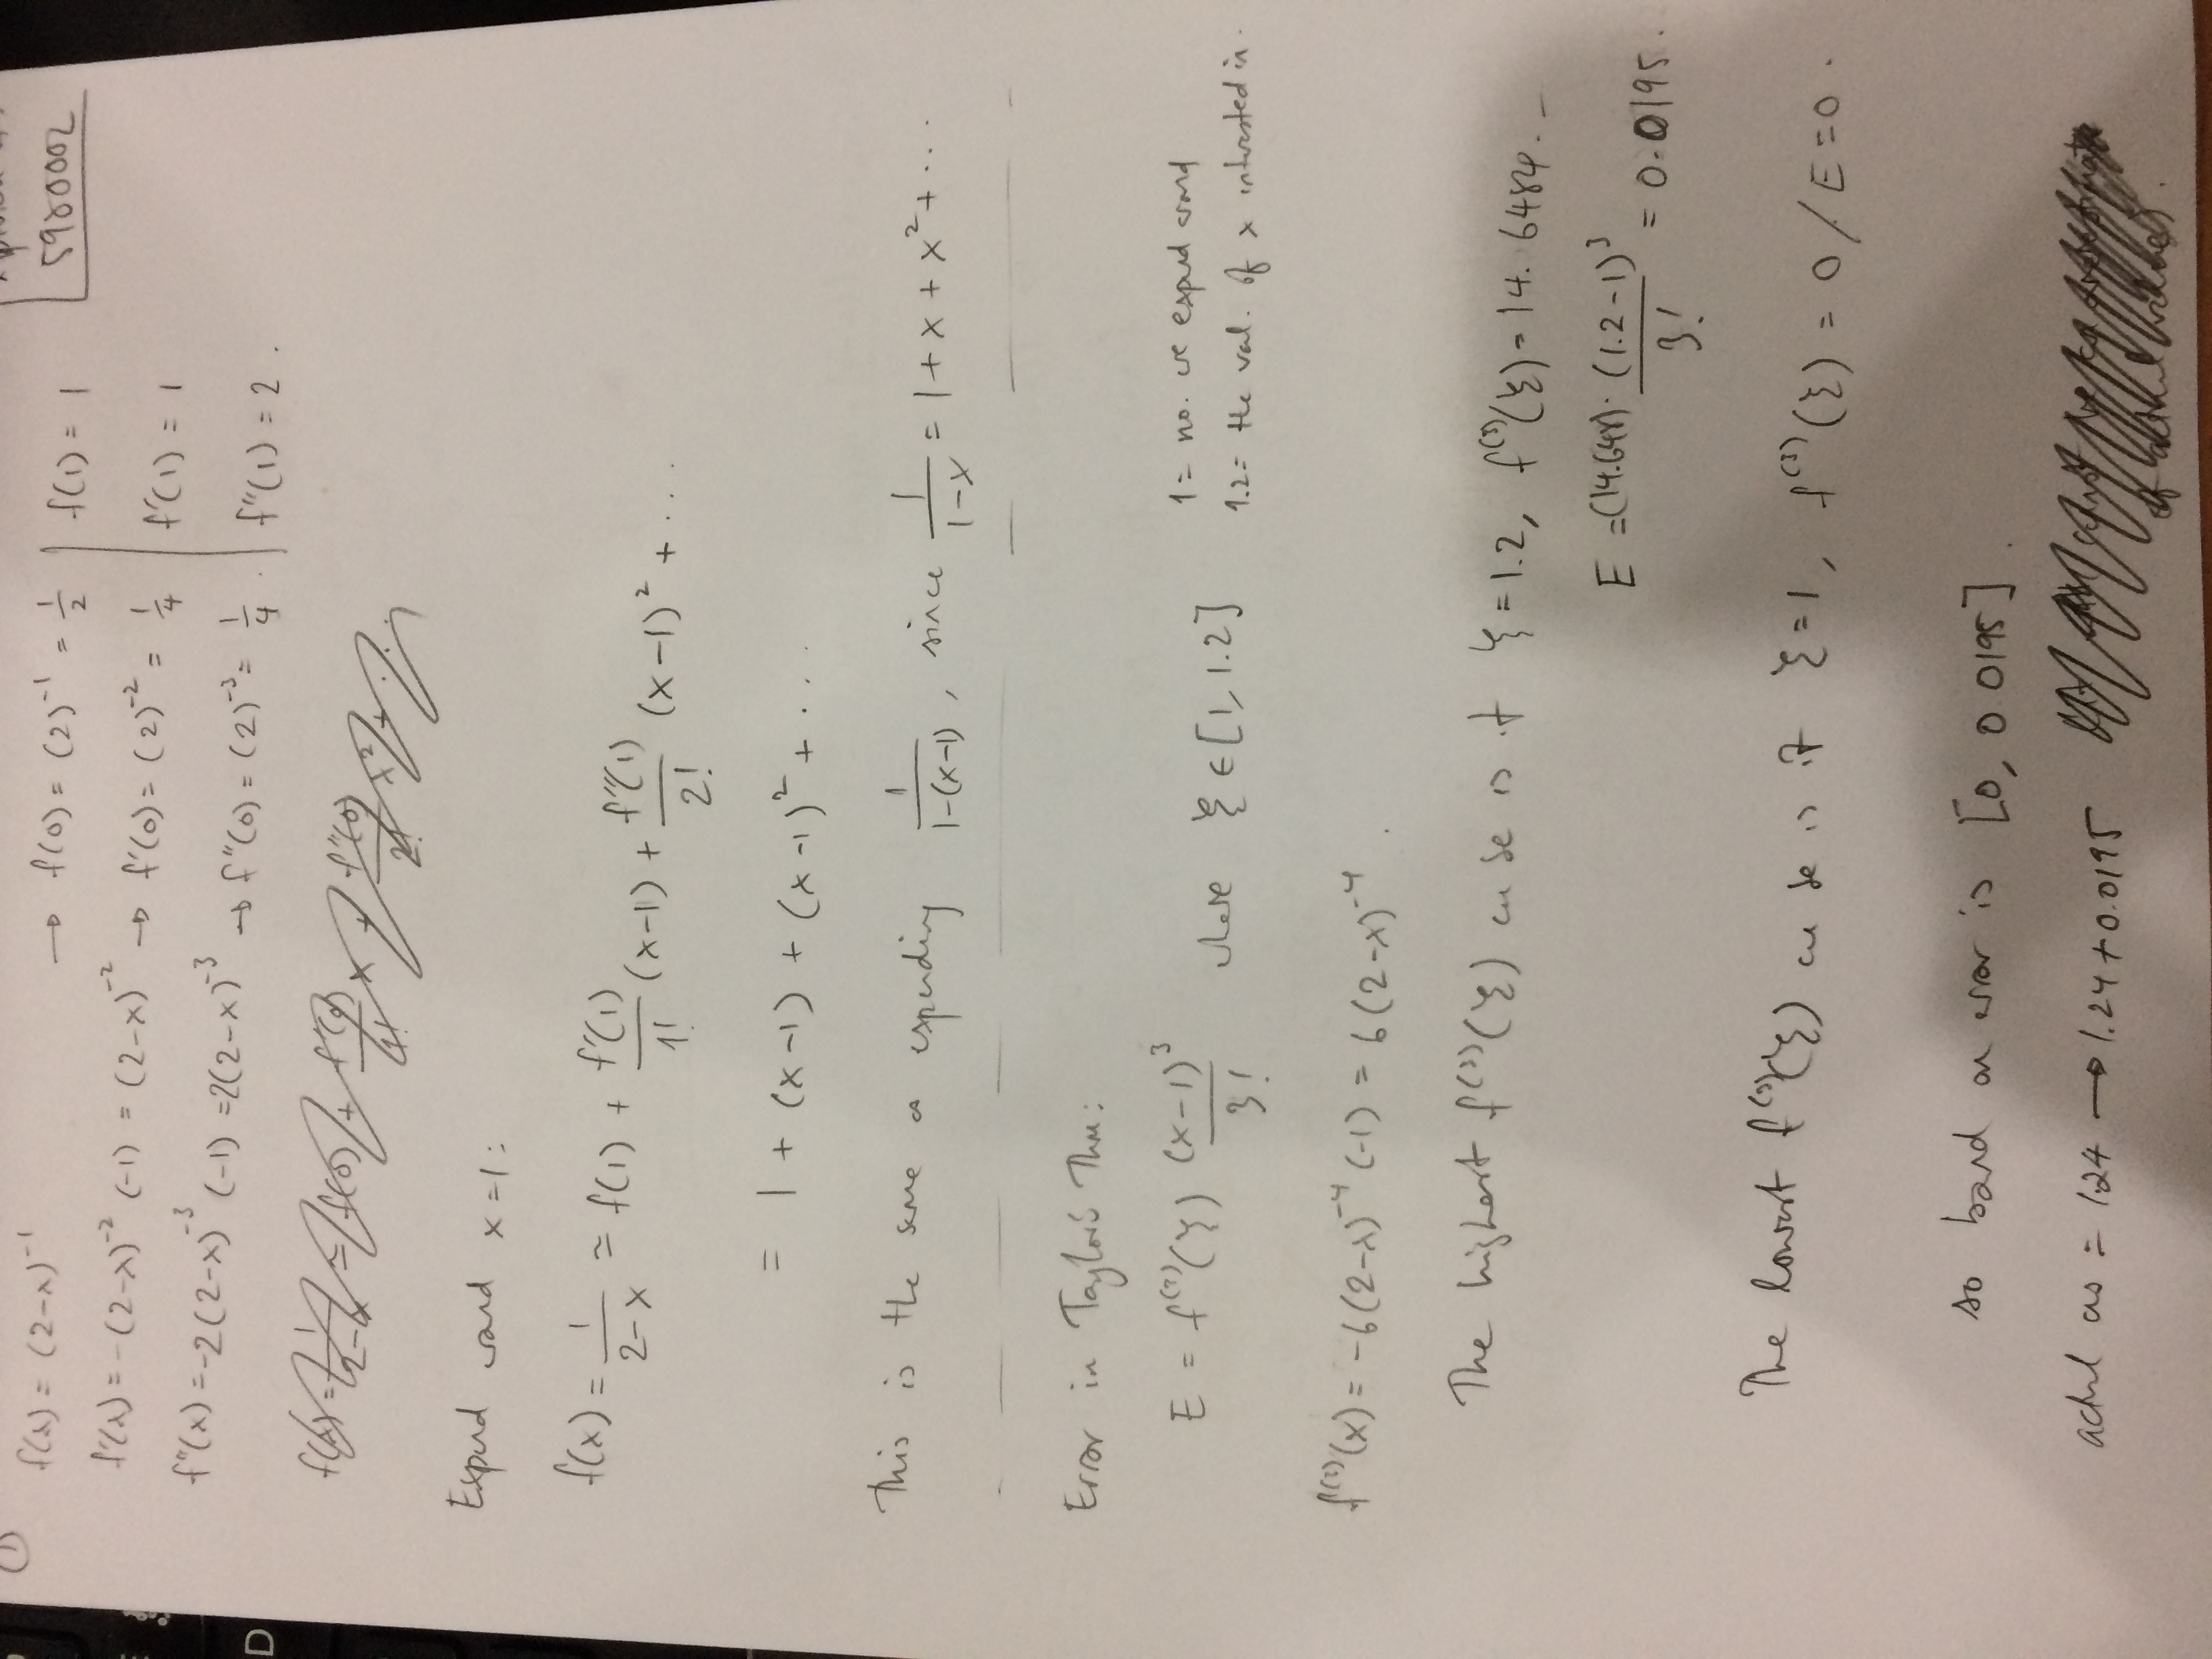 ①
5980002
f(x) = (2-x)⁻¹ → f(0) = (2)⁻¹ = 1/2 | f(1) = 1
f'(x) = -(2-x)⁻² (-1) = (2-x)⁻² → f'(0) = (2)⁻² = 1/4 | f'(1) = 1
f''(x) = -2(2-x)⁻³ (-1) = 2(2-x)⁻³ → f''(0) = (2)⁻³ = 1/4 . | f''(1) = 2 .
f(x) = 1/(2-x) ≃ f(0) + f'(0)/1! x + f''(0)/2! x² + ...
Expand around x = 1 :
f(x) = 1/(2-x) ≃ f(1) + f'(1)/1! (x-1) + f''(1)/2! (x-1)² + ...
= 1 + (x-1) + (x-1)² + ...
This is the same as expanding 1/(1-(x-1)) , since 1/(1-x) = 1 + x + x² + ...
Error in Taylor's Thm :
E = f⁽³⁾(ξ) (x-1)³/3! where ξ ∈ [1, 1.2]
1 = no. we expand around
1.2 = the val. of x interested in .
f⁽³⁾(x) = -6(2-x)⁻⁴ (-1) = 6(2-x)⁻⁴ .
The highest f⁽³⁾(ξ) can be is if ξ = 1.2, f⁽³⁾(ξ) = 14.6484...
E = (14.648) · (1.2-1)³/3! = 0.0195 .
The lowest f⁽³⁾(ξ) can be is if ξ = 1, f⁽³⁾(ξ) = 0 / E = 0 .
so bound on error is [0, 0.0195] .
actual ans = 1.24 → 1.24 + 0.0195
of actual values) .